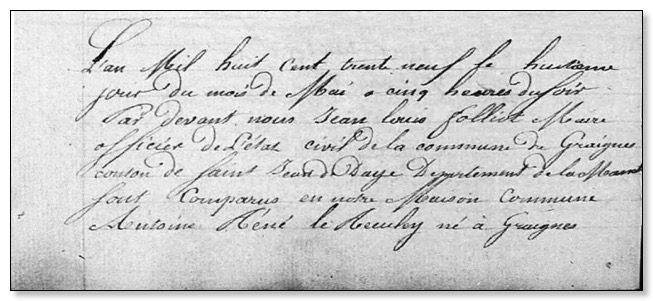 L'an Mil huit cent trente neuf le huitieme
jour du mois de Mai a cinq heures du soir
Par devant nous Jean louis folliot Maire
officier de L'état civil de la commune de Graignes
conton de saint Jean de Daye Departement de la Manche
sont Comparus en notre Maison Commune
Antoine Réné le né à Graignes